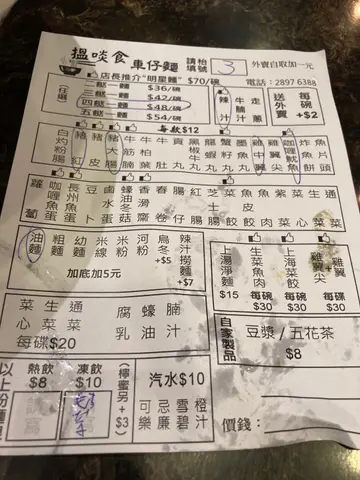 搵啖食 車仔麵
請枱填號 3
外賣自取加一元
店長推介"明星麵" $70/碗
電話：2897 6388
任選
三餸一麵 $36/碗
三餸一麵 $42/碗
四餸一麵 $48/碗
五餸一麵 $54/碗
辣汁
牛腩汁
走蔥
送外賣 每碗+$2
每款$12
白灼粉腸
豬紅
豬皮
豬大腸
牛筋丸
牛柏葉
貢丸
墨丸
黑椒牛丸
龍蝦丸
蟹籽丸
墨魚丸
雞中翼
雞翼尖
咖喱魷魚
炸魚片
魚片頭
蘿蔔
咖喱魚蛋
長州魚蛋
豆卜
鹵水蛋
蠔油冬菇
香滑齋
春卷
腸仔
紅腸
芝士腸
魚皮餃
魚肉餃
紫菜
菜心
生菜
通菜
油麵
粗麵
幼麵
米線
米粉
河粉
烏冬 +$5
辣汁撈麵 +$7
加底加5元
上湯淨麵 $15
生菜魚肉 每碗 $30
上海菜餃 每碗 $30
雞翼尖+雞翼 每碗 $30
菜心
生菜
通菜
每碟$20
腐乳
蠔油
腩汁
自家製品
豆漿 / 五花茶
$8
以上粉麵
熱飲 $8
凍飲 $10
檸蜜另+$3
汽水$10
可樂
忌廉
雪碧
橙汁
價錢：